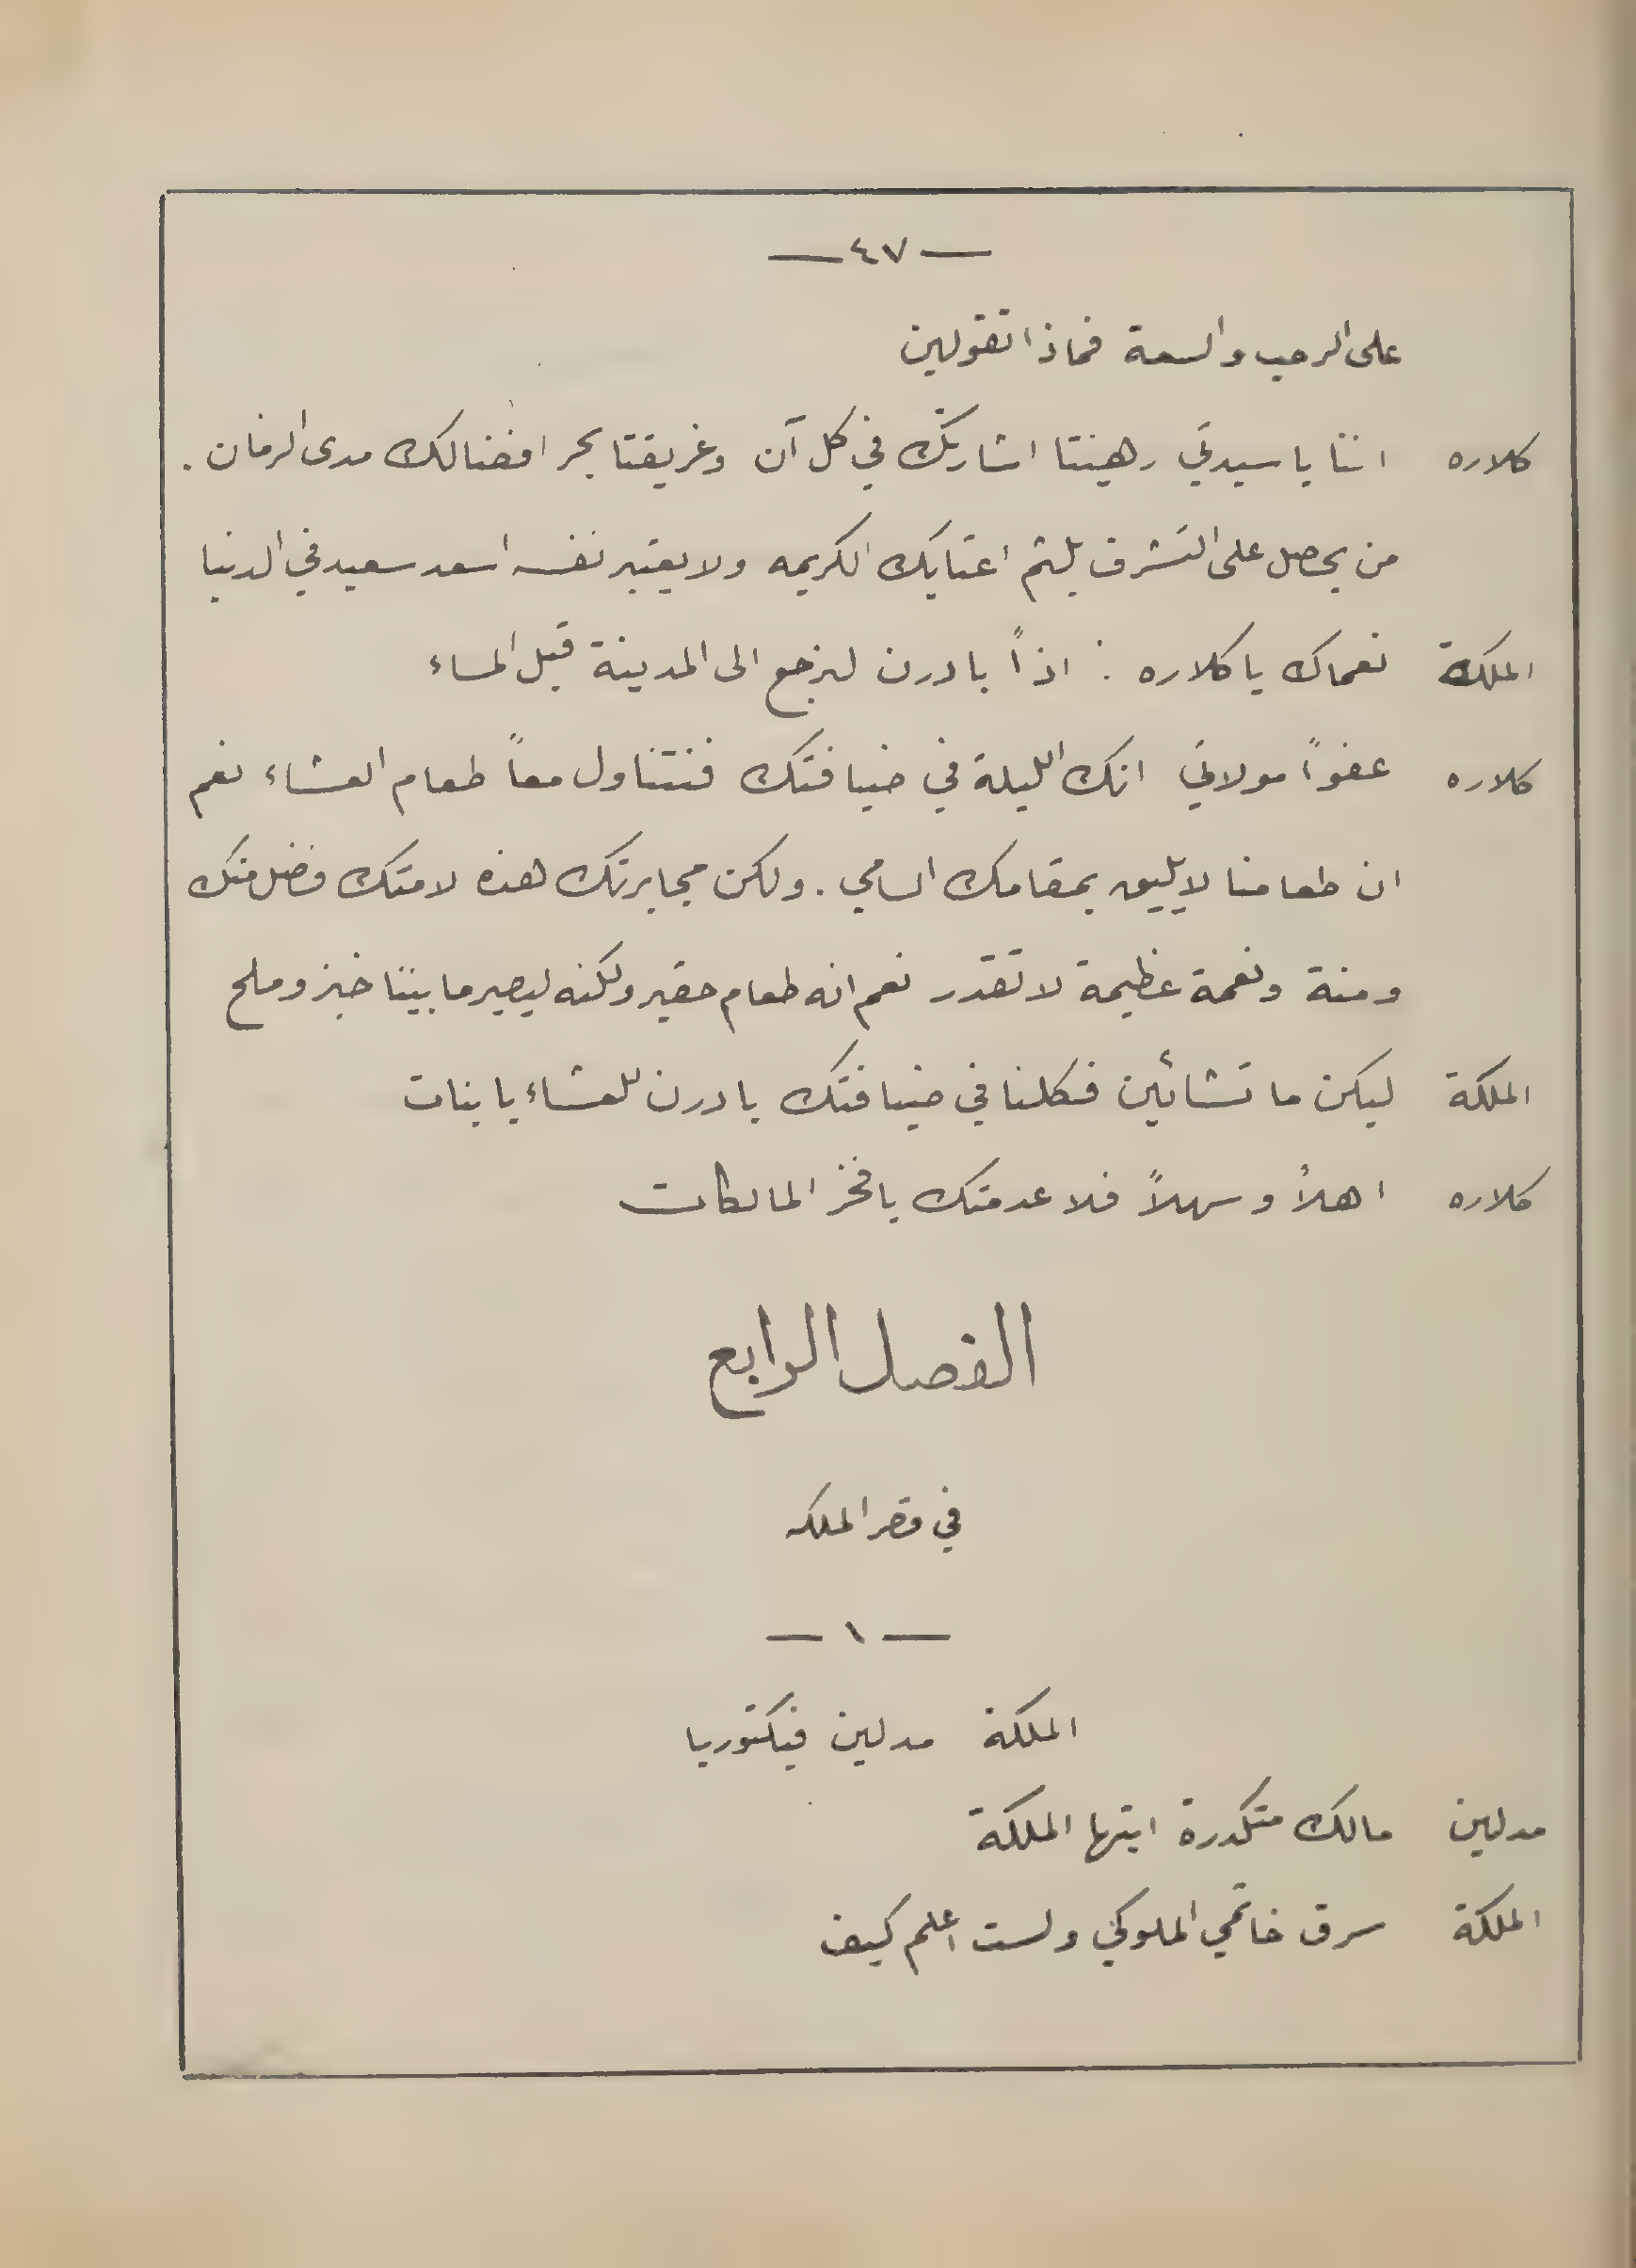 — ٤٧ —
على الرحب والسعة فماذا تقولين
كلاره اننا يا سيدتي رهينتا اشارتك في كل آن وغريقتا بحر افضالك مدى الزمان .
من يحصل على التشرف بلثم اعتابك الكريمه ولا يعتبر نفسه اسعد سعيد في الدنيا
الملكة نعماك يا كلاره : اذاً بادرن لنرجع الى المدينة قبل المساء
كلاره عفواً مولاتي انك الليلة في ضيافتك فنتناول معاً طعام العشاء نعم
ان طعامنا لا يليق بمقامك السامي . ولكن مجابرتك هذه لامتك فضل منك
ومنة ونعمة عظيمة لا تقدر نعم انه طعام حقير ولكنه ليصير ما بيننا خبز وملح
الملكة ليكن ما تشائين فكلنا في ضيافتك بادرن للعشاء يا بنات
كلاره اهلاً وسهلاً فلا عدمتك يا فخر المالكات
الفصل الرابع
في قصر الملكه
— ١ —
الملكة مدلين فيكتوريا
مدلين مالك متكدرة ايتها الملكة
الملكة سرق خاتمي الملوكي ولست اعلم كيف